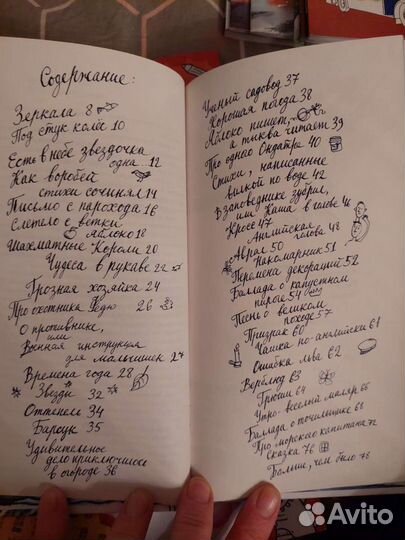 Содержание:
Зеркала 8
Под стук колёс 10
Есть в небе звёздочка
одна... 12
Как воробей
стихи сочинял 14
Письмо с парохода 16
Слетело с ветки
яблоко 18
Шахматные Короли 20
Чудеса в рукаве 22
Грозная хозяйка 24
Про охотника Федю 26
О противнике,
или
Военная инструкция
для малышек 27
Времена года 28
Звезды 32
Оттепель 34
Барсук 35
Удивительное
дело приключилось
в огороде 36
Ученый садовод 37
Хорошая погода 38
Яблоко пишет,
а тыква читает 39
Про одного Ондатра 40
Стихи, написанные
вилкой по воде 42
В заповеднике зубрил,
или Каша в голове 46
Кросс 47
Английская
голова 48
Аврал 50
Накомарник 51
Перемена декораций 52
Баллада о капустном
пироге 54
Песнь о великом
походе 57
Призрак 60
Чашка по-английски 61
Ошибка льва 62
Верблюд 63
Грюши 64
Утро: весёлый маляр 65
Баллада о точильщике 66
Про морского капитана 72
Сказка 76
Больше, чем было 78
Avito